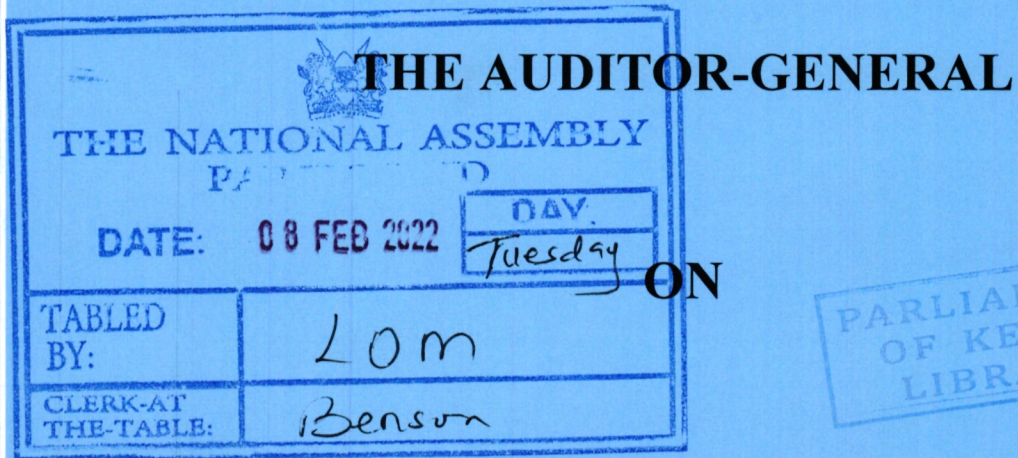 THE AUDITOR-GENERAL
THE NATIONAL ASSEMBLY
DATE: 08 FEB 2022
DAY.
Tuesday
ON
TABLED
BY:
LOM
CLERK-AT
THE-TABLE:
Benson
OF